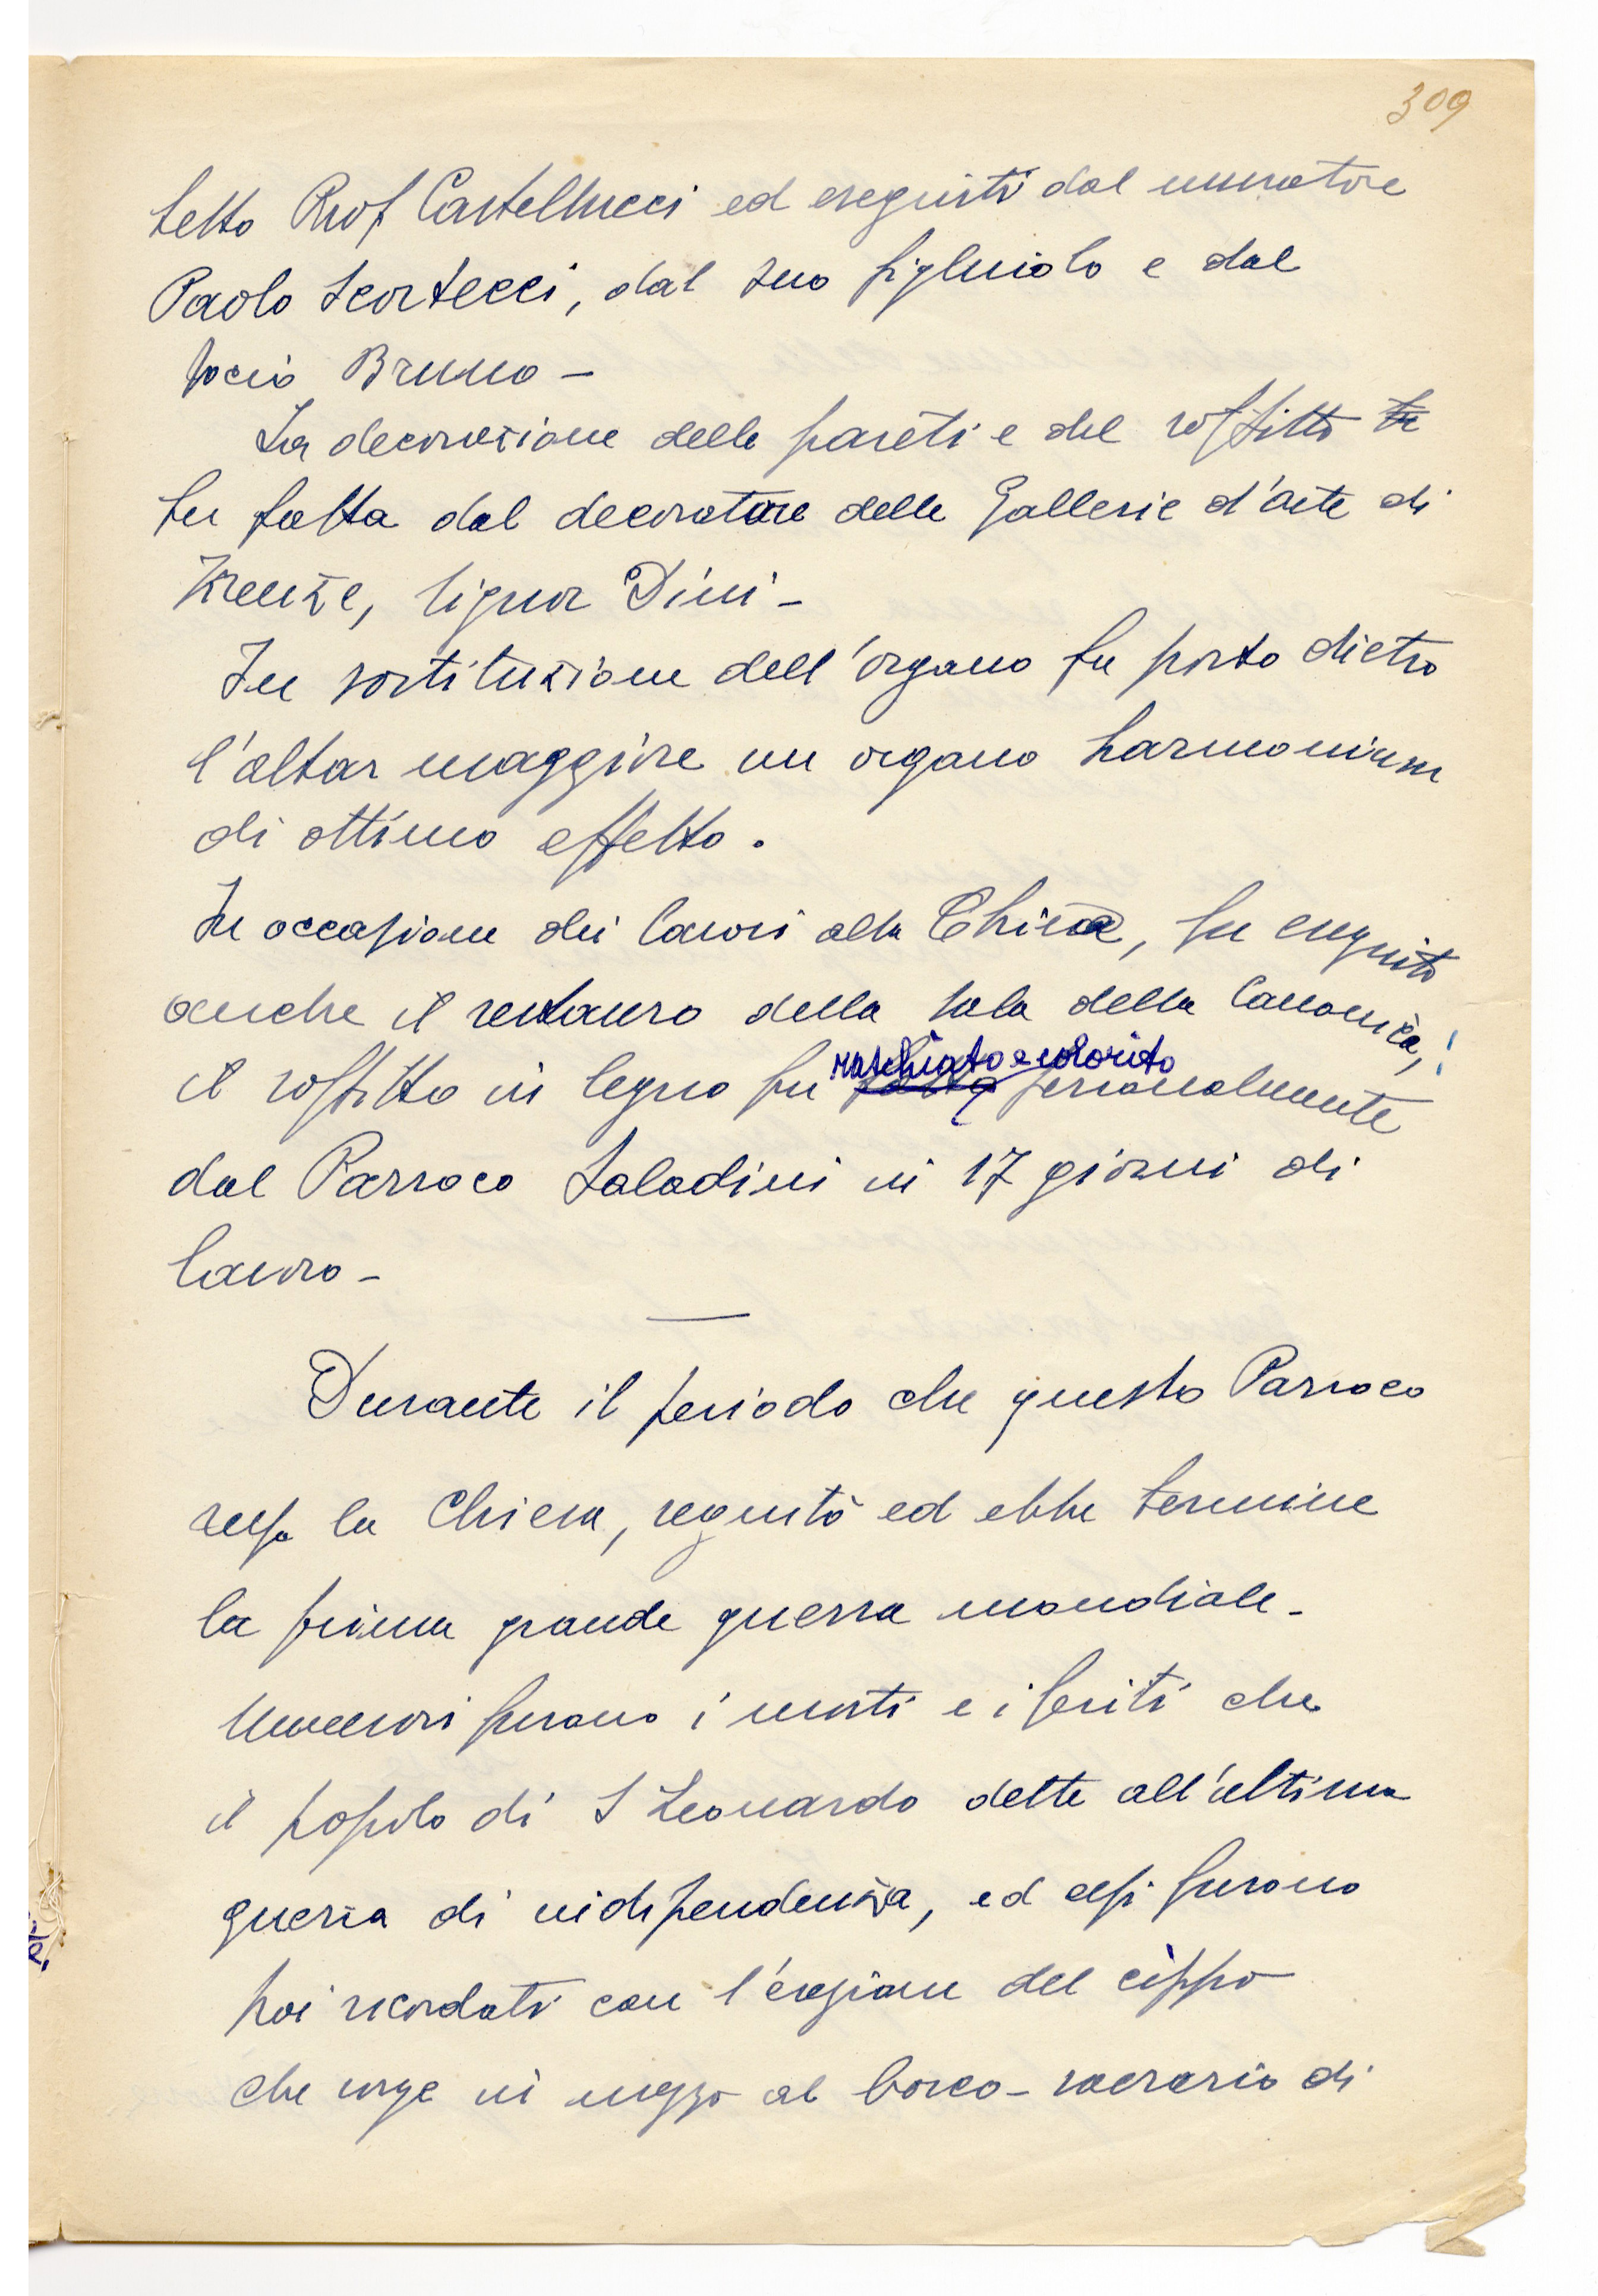 309
tetto Prof Castellucci ed eseguiti dal muratore
Paolo Scortecci, dal suo figliuolo e dal
socio Bruno -
La decorazione delle pareti e del soffitto fu
fu fatta dal decoratore delle Gallerie d'arte di
Firenze, signor Dini -
In sostituzione dell'organo fu posto dietro
l'altar maggiore un organo harmonium
di ottimo effetto.
In occasione dei lavori alla Chiesa, fu eseguito
anche il restauro della sala della Canonica,
raschiato e colorito
il soffitto in legno fu personalmente
dal Parroco Saladini in 17 giorni di
lavoro -
Durante il periodo che questo Parroco
resse la Chiesa, seguitò ed ebbe termine
la prima grande guerra mondiale -
Numerosi furono i morti e i feriti che
il popolo di S Leonardo dette all'ultima
guerra di indipendenza, ed essi furono
poi ricordati con l'erezione del cippo
che sorge in mezzo al bosco - sacrario di